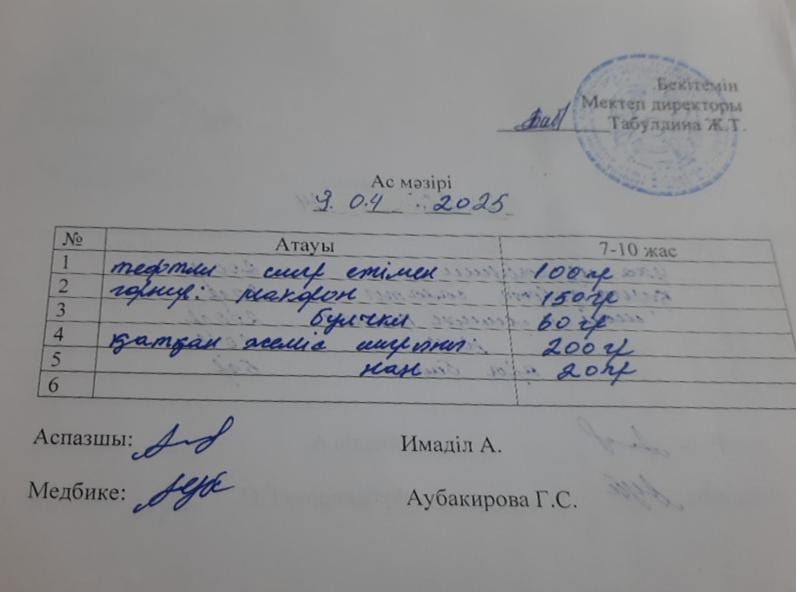 Бекітемін
Мектеп директоры
Табулдина Ж.Т.
Ас мәзірі
9. 04 2025
№ Атауы 7-10 жас
1 тефтли сиыр етімен 100гр
2 горнир: макарон 150гр
3 булчки 60 гр
4 қатқан жеміс шырыны 200гр
5 нан 20гр
6
Аспазшы: Имаділ А.
Медбике: Аубакирова Г.С.